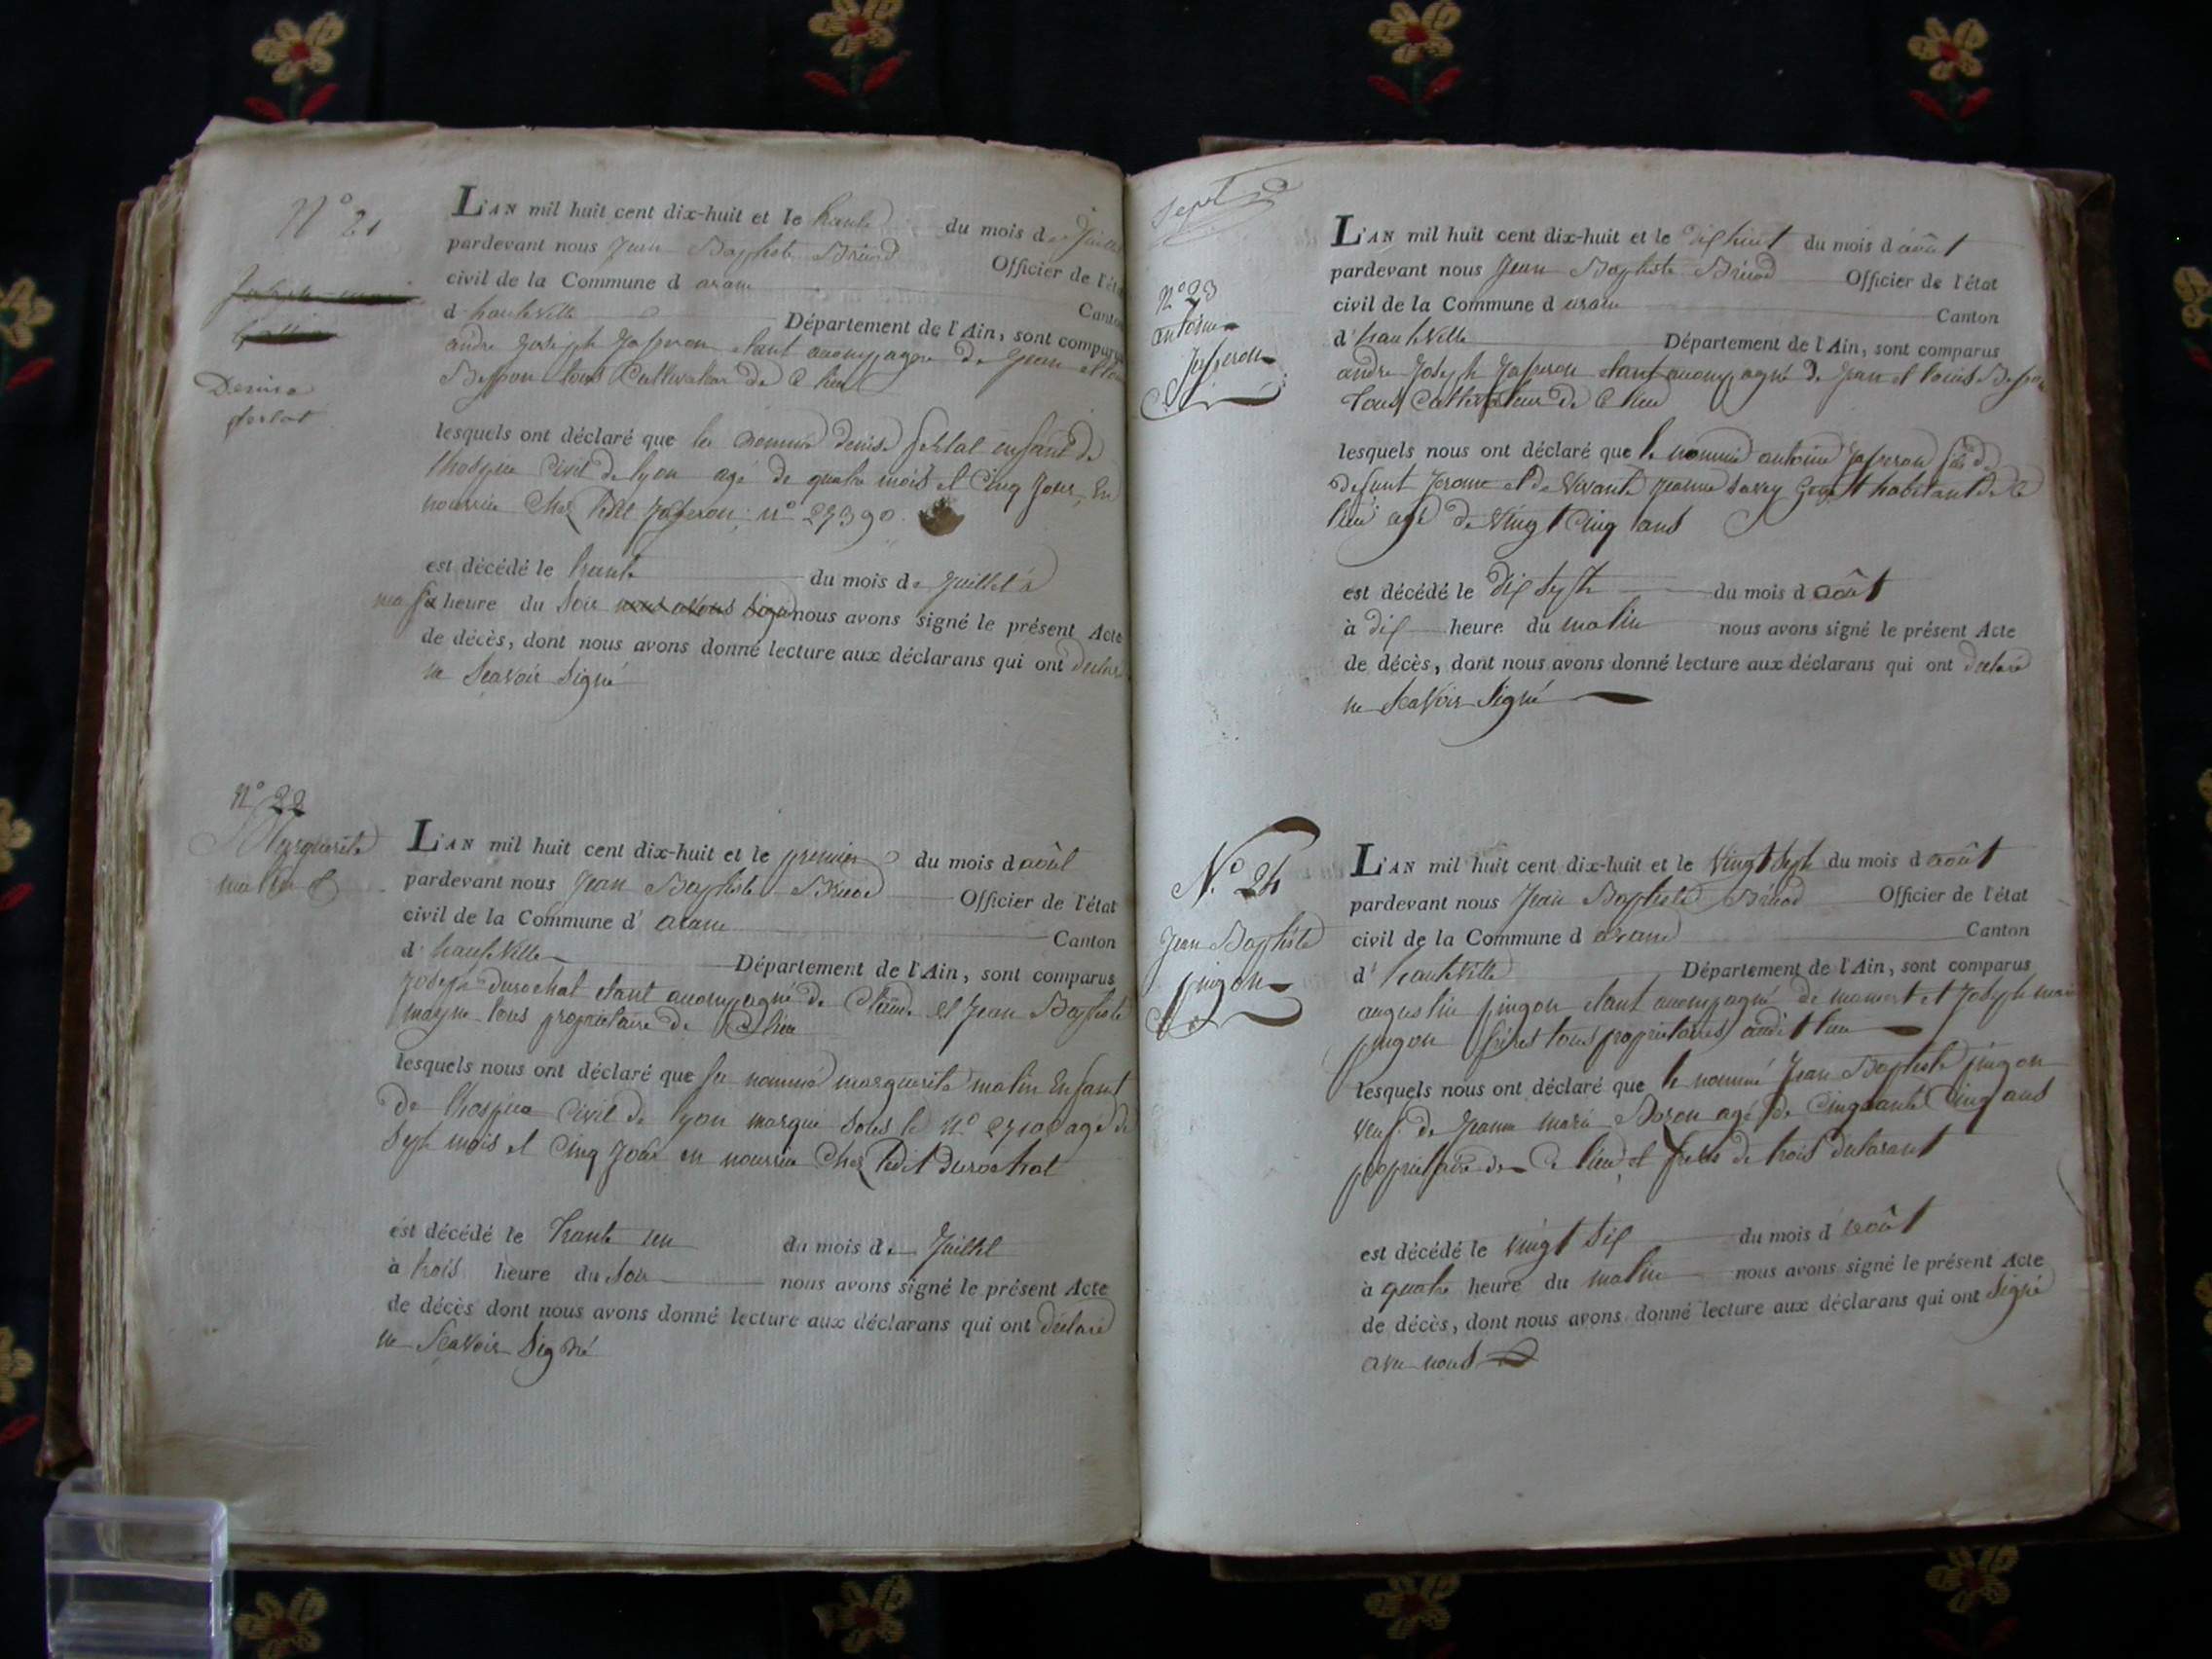 N.º 21
Denise
ferlat
L'AN mil huit cent dix-huit et le trente du mois de Juillet
pardevant nous Jean Baptiste Officier de l'état
civil de la Commune d aranc Canton
d' hauteville Département de l'Ain, sont comparus
andre Joseph Jasseron etant accompagné de Jean et
tous Cultivateur de Ce lieu
lesquels ont déclaré que la nommé denise ferlat enfant de
lhospice Civil de lyon agé de quatre mois et Cinq Jour, En
nourrice Chez ledit Jasseron; nº 27390
est décédé le trente du mois de Juillet à
heure du Soir nous avons signé nous avons signé le présent Acte
de décès, dont nous avons donné lecture aux déclarans qui ont déclaré
ne Scavoir Signé
N.º 22
Marguerite
matin
L'AN mil huit cent dix-huit et le premier du mois d août
pardevant nous Jean Baptiste Officier de l'état
civil de la Commune d' aranc Canton
d' hauteville Département de l'Ain, sont comparus
Joseph durochat etant accompagné de Claude et Jean Baptiste
tous proprietaire de Ce lieu
lesquels nous ont déclaré que la nommé marguerite matin Enfant
de lhospice Civil de lyon marqué Sous le Nº agé de
Sept mois et Cinq Jour en nourrice Chez ledit durochat
est décédé le trente un du mois de Juillet
à trois heure du Soir nous avons signé le présent Acte
de décès dont nous avons donné lecture aux déclarans qui ont déclaré
ne Scavoir Signé
Sept
Nº 23
antoine
Jasseron
L'AN mil huit cent dix-huit et le dix huit du mois d août
pardevant nous Jean Baptiste Officier de l'état
civil de la Commune d aranc Canton
d' hauteville Département de l'Ain, sont comparus
andre Joseph Jasseron etant accompagné de Jean et louis
tous Cultivateur de Ce lieu
lesquels nous ont déclaré que le nommé antoine Jasseron fils de
defunt Jerome et de Vivante Jeanne Savey habitant de Ce
lieu agé de Vingt Cinq ans
est décédé le dix Sept du mois d août
à dix heure du matin nous avons signé le présent Acte
de décès, dont nous avons donné lecture aux déclarans qui ont déclaré
ne Scavoir Signé
N.º 24
Jean Baptiste
pingon
L'AN mil huit cent dix-huit et le Vingt Sept du mois d août
pardevant nous Jean Baptiste Officier de l'état
civil de la Commune d aranc Canton
d' hauteville Département de l'Ain, sont comparus
augustin pingon etant accompagné de mamert et Joseph marie
pingon frères tous proprietaires audit lieu
lesquels nous ont déclaré que le nommé Jean Baptiste pingon
veuf de Jeanne marie agé de Cinquante Cinq ans
proprietaire de Ce lieu et frere de trois declarant
est décédé le vingt Six du mois d août
à quatre heure du matin nous avons signé le présent Acte
de décès, dont nous avons donné lecture aux déclarans qui ont Signé
avec nous